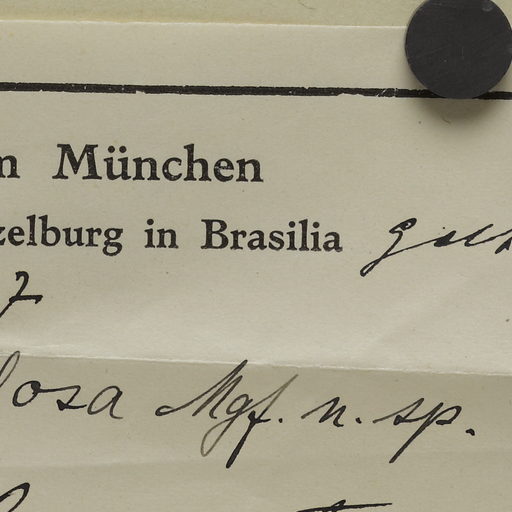 n München
zelburg in Brasilia
7
losa Mgf. n. sp.